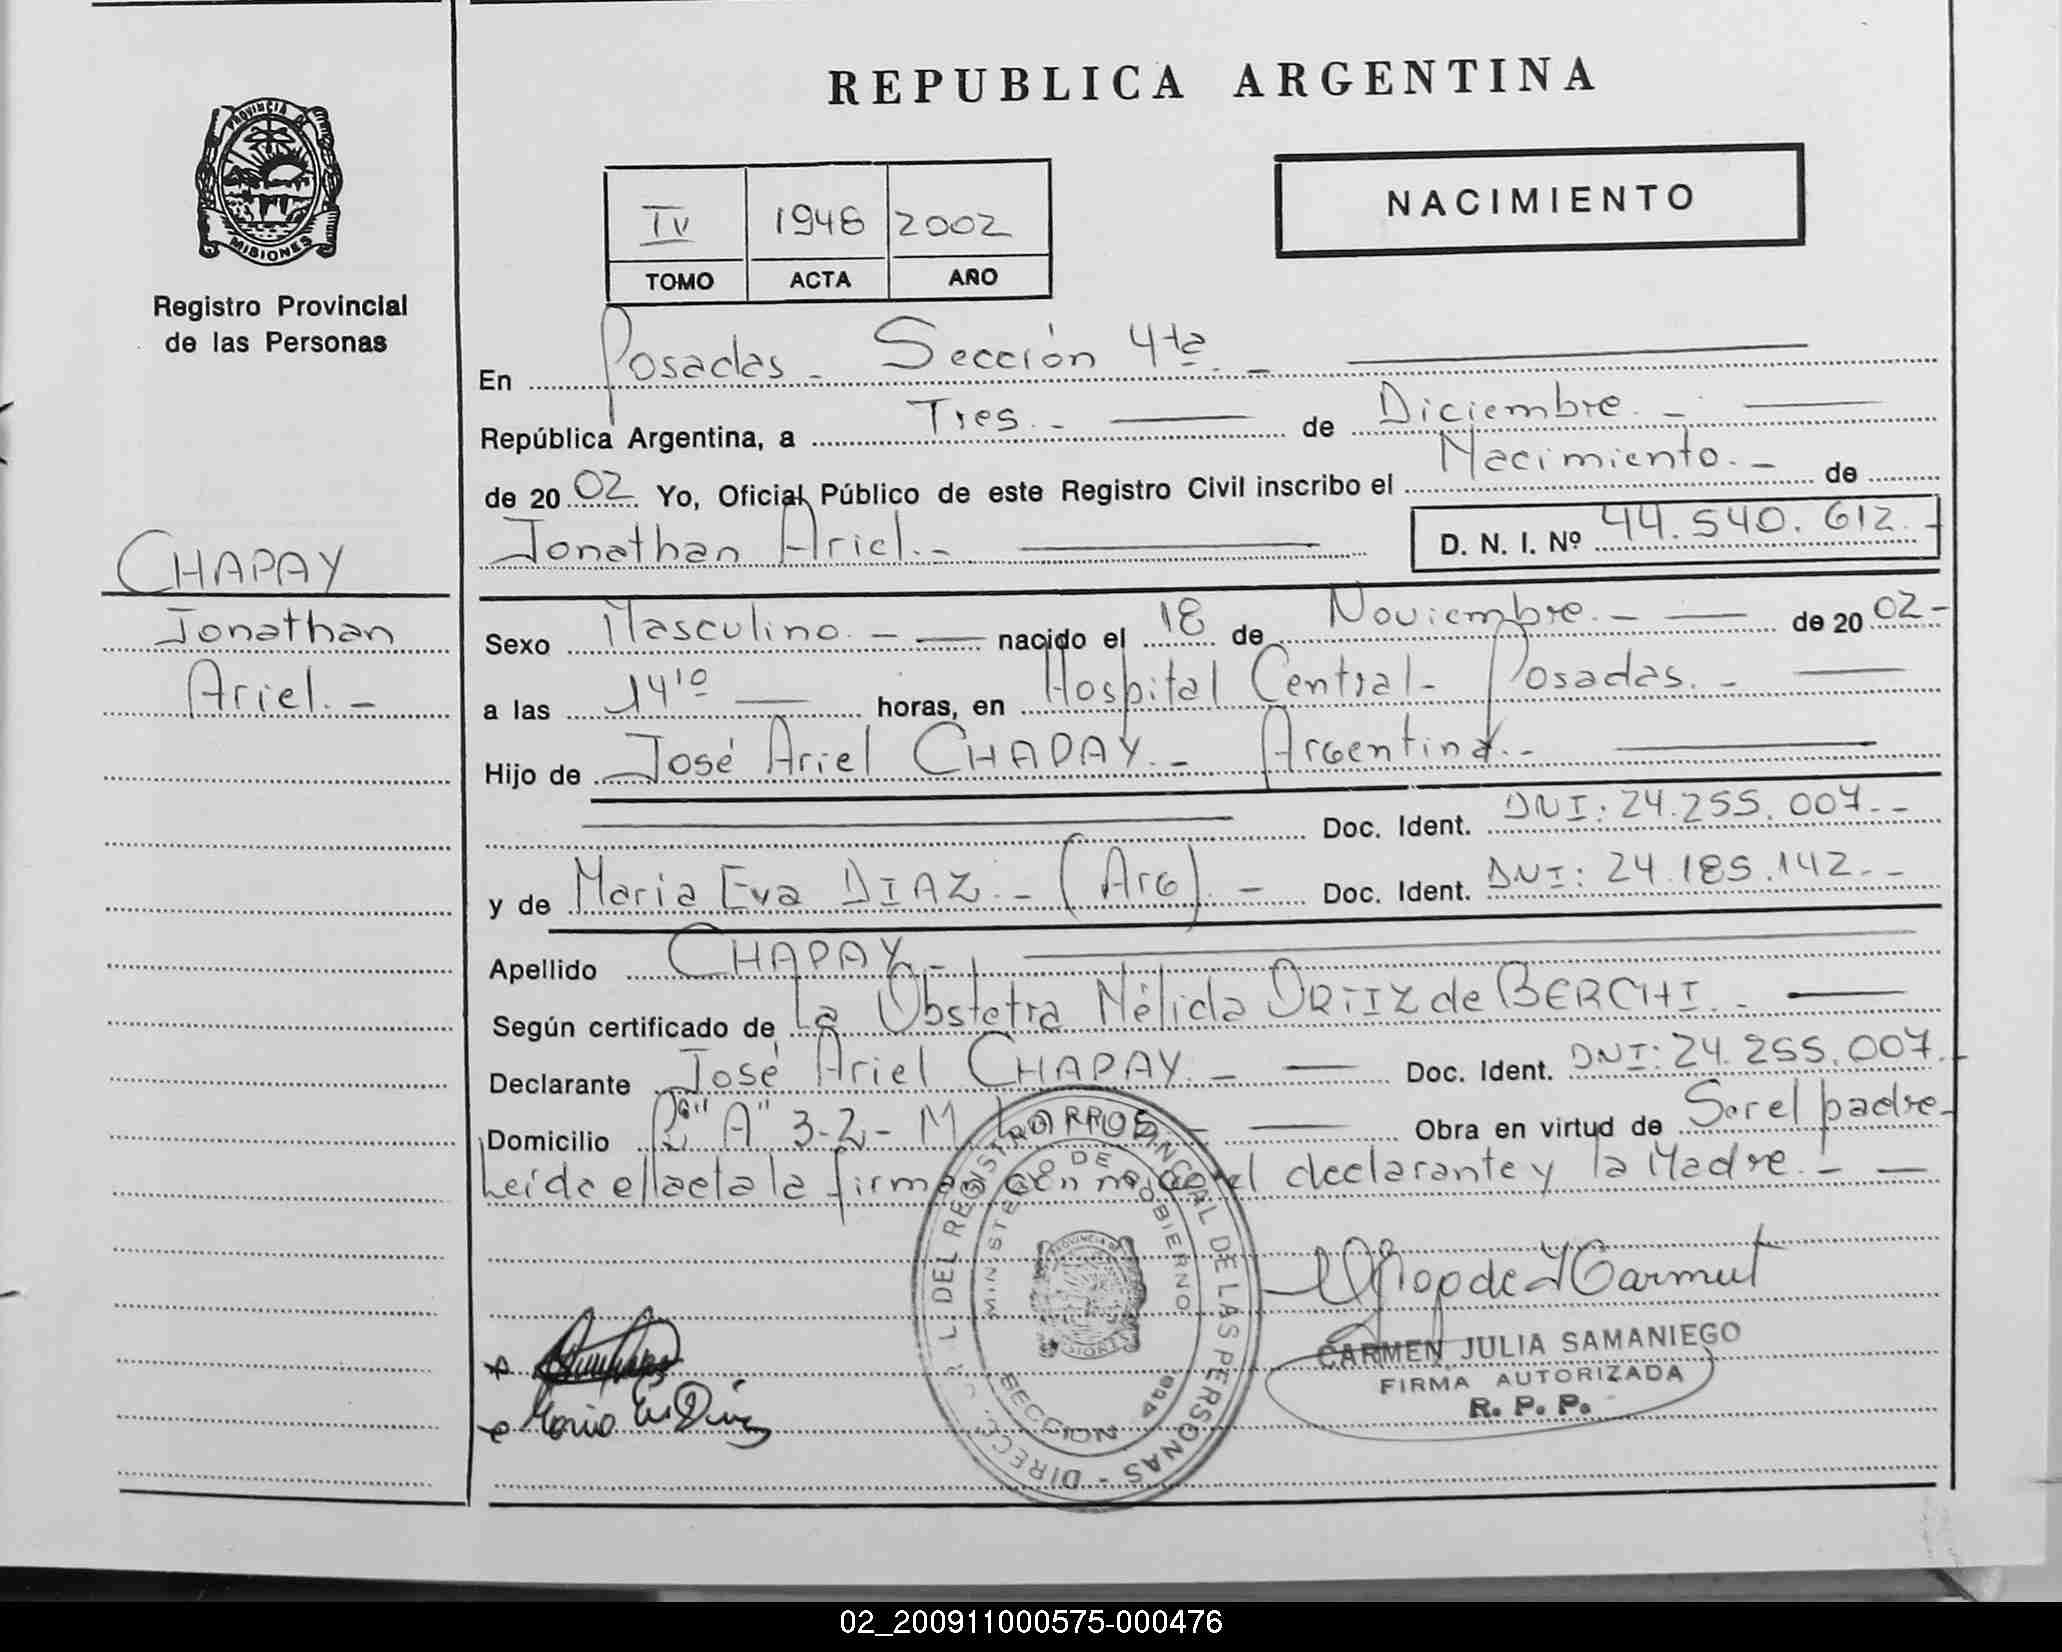 REPUBLICA ARGENTINA
PROVINCIA DE
MISIONES
Registro Provincial
de las Personas
NACIMIENTO
IV 1948 2002
TOMO ACTA AÑO
En Posadas - Sección 4ta. -
República Argentina, a Tres. - de Diciembre. -
de 20 02 Yo, Oficial Público de este Registro Civil inscribo el Nacimiento. - de
Jonathan Ariel. - D. N. I. Nº 44.540.612. -
CHAPAY
Jonathan
Ariel. -
Sexo Masculino. - nacido el 18 de Noviembre. - de 20 02 -
a las 14'10 horas, en Hospital Central - Posadas. -
Hijo de José Ariel CHAPAY. - Argentina. -
Doc. Ident. DNI: 24.255.007. -
y de Maria Eva DIAZ. - (Arg). - Doc. Ident. DNI: 24.185.142. -
Apellido CHAPAY. -
Según certificado de La Obstetra Nélida ORTIZ de BERCHI. -
Declarante José Ariel CHAPAY. - Doc. Ident. DNI: 24.255.007. -
Domicilio "A" 3-2 - Obra en virtud de Ser el padre -
Leída el acta la firman con migo el declarante y la Madre. -
DIRECC. DEL REGISTRO PROVINCIAL DE LAS PERSONAS -
MINISTERIO DE GOBIERNO
SECCION 4ta
CARMEN JULIA SAMANIEGO
FIRMA AUTORIZADA
R. P. P.
Maria E. Diaz
02_200911000575-000476